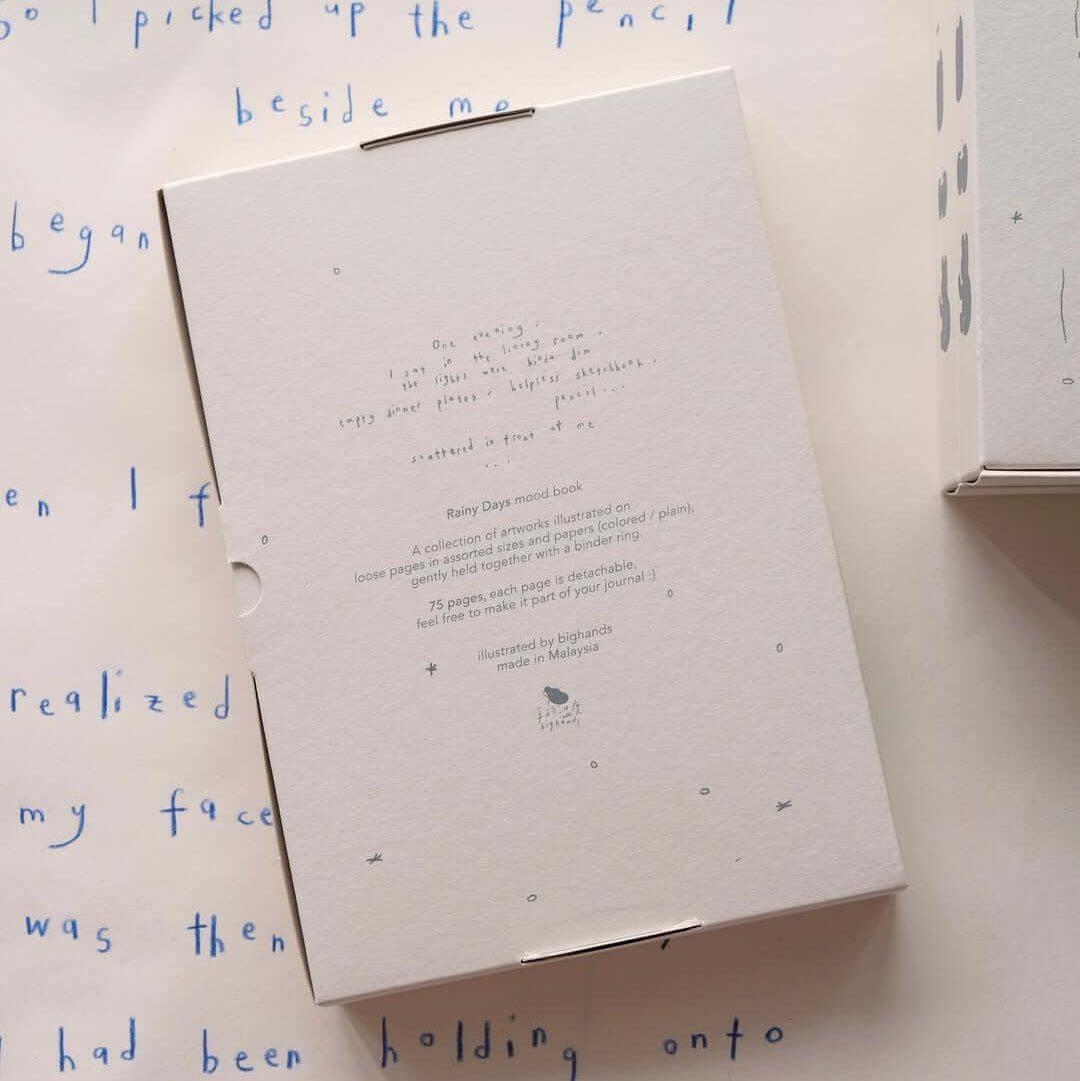 So I picked up the pencil
beside me
began
en I f
realized
my face
was then
had been holding onto
One evening,
I sat in the living room,
the lights were kinda dim
empty dinner plates, helpless sketchbook,
pencil...
scattered in front of me
...
Rainy Days mood book
A collection of artworks illustrated on
loose pages in assorted sizes and papers (colored / plain),
gently held together with a binder ring.
75 pages, each page is detachable,
feel free to make it part of your journal :)
illustrated by bighands
made in Malaysia
bighands